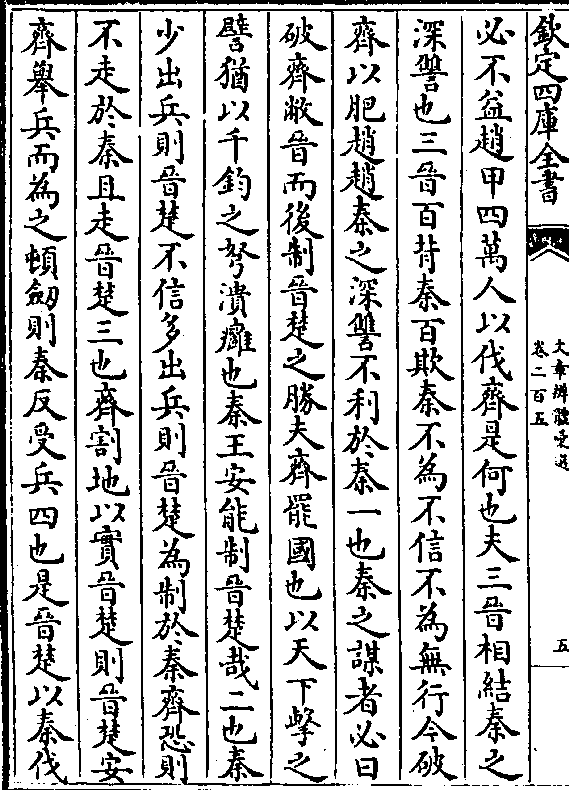 欽定四庫全書
文章辨體彙選
卷二百五
五
必不益趙甲四萬人以伐齊是何也夫三晉相結秦之
深讐也三晉百背秦百欺秦不為不信不為無行今破
齊以肥趙趙秦之深讐不利於秦一也秦之謀者必曰
破齊敝晉而後制晉楚之勝夫齊罷國也以天下擊之
譬猶以千鈞之弩潰癰也秦王安能制晉楚哉二也秦
少出兵則晉楚不信多出兵則晉楚為制於秦齊恐則
不走於秦且走晉楚三也齊割地以實晉楚則晉楚安
齊舉兵而為之頓劒則秦反受兵四也是晉楚以秦伐